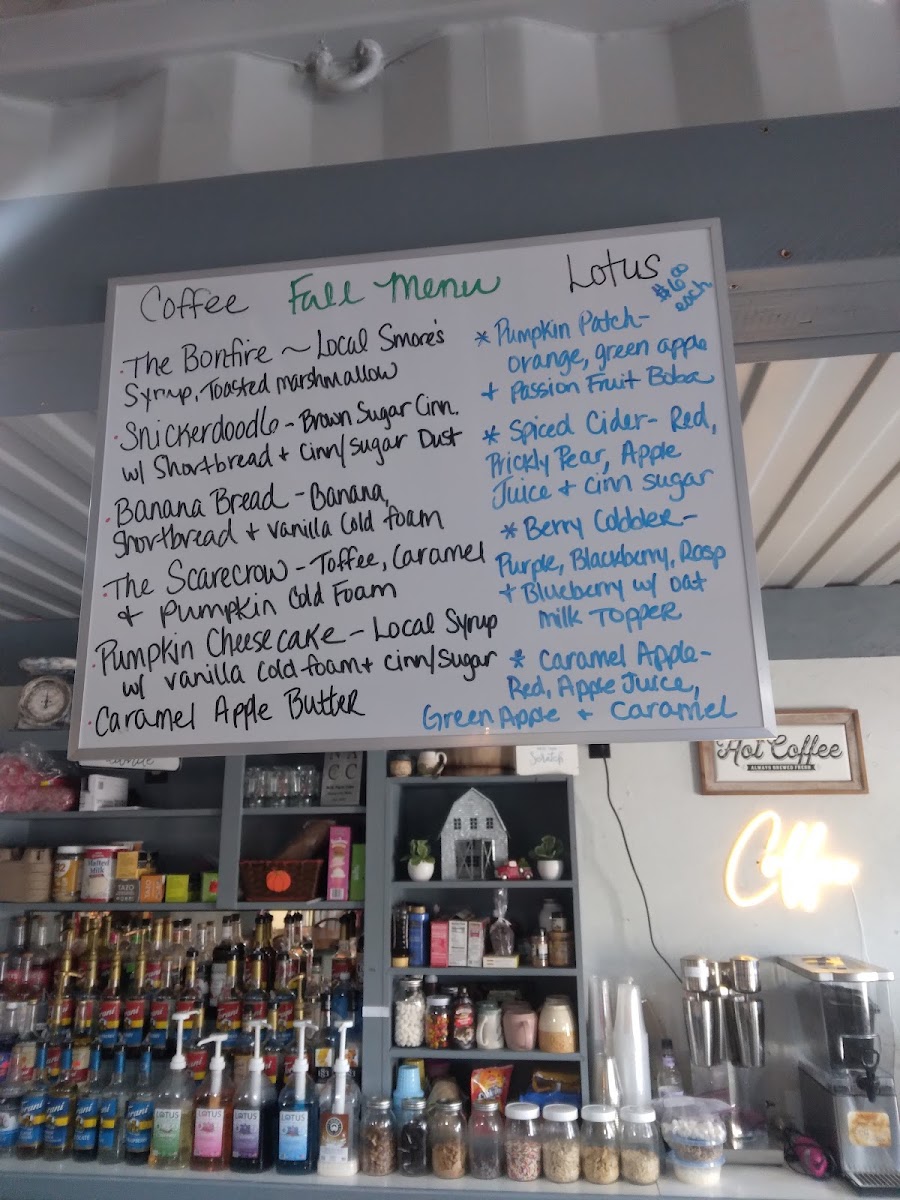 Coffee
Fall Menu
Lotus
$6.00
each
The Bonfire ~ Local Smores
Syrup, Toasted marshmallow
Snickerdoodle - Brown Sugar Cinn.
w/ Shortbread + Cinn/Sugar Dust
Banana Bread - Banana,
Shortbread + vanilla Cold foam
The Scarecrow - Toffee, Caramel
+ Pumpkin Cold Foam
Pumpkin Cheesecake - Local Syrup
w/ vanilla cold foam + cinn/sugar
Caramel Apple Butter
* Pumpkin Patch -
orange, green apple
+ Passion Fruit Boba
* Spiced Cider - Red,
Prickly Pear, Apple
Juice + cinn sugar
* Berry Cobbler -
Purple, Blackberry, Rasp
+ Blueberry w/ oat
milk TOPPER
* Caramel Apple -
Red, Apple Juice,
Green Apple + Caramel
Hot Coffee
ALWAYS BREWED FRESH
Coffee
Scratch
Malted
Milk
TAZO
LOTUS
LOTUS
LOTUS
LOTUS